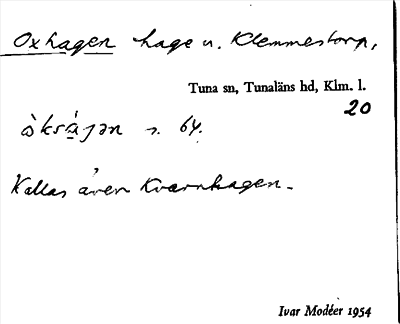 Oxhagen hage u. Klemmestorp,
Tuna sn, Tunaläns hd, Klm. l.
20
s. 64.
Kallas även Kvarnhagen.
Ivar Modéer 1954